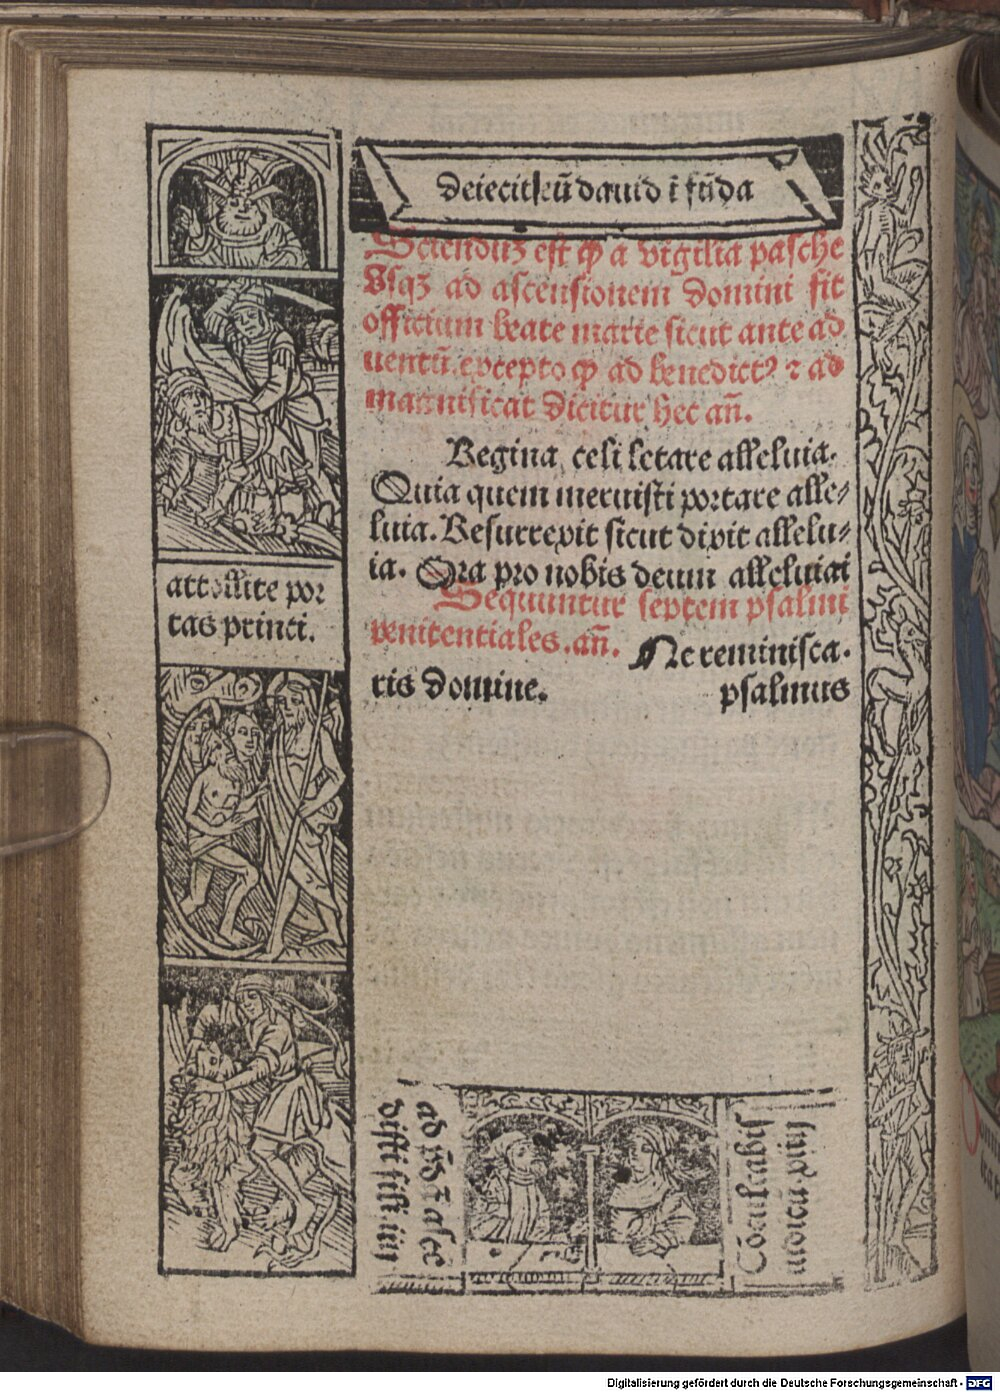 Deiecit eū dauid ī fūda
Sciendūʒ est ꝙ a vigilia pasche
Vsqʒ ad ascensionem domini fit
officium beate marie sicut ante ad
uentū. excepto ꝙ ad benedictꝰ ⁊ ad
magnificat dicitur hec añ.
Regina celi letare alleluia.
Quia quem meruisti portare alle⸗
luia. Resurrexit sicut dixit allelu⸗
ia. Ora pro nobis deum alleluiai
Sequuntur septem psalmi
penitentiales. añ. Ne reminisca.
ris domine. psalmus
attollite por
tas princi.
Cōculcabis
Digitalisierung gefördert durch die Deutsche Forschungsgemeinschaft - DFG